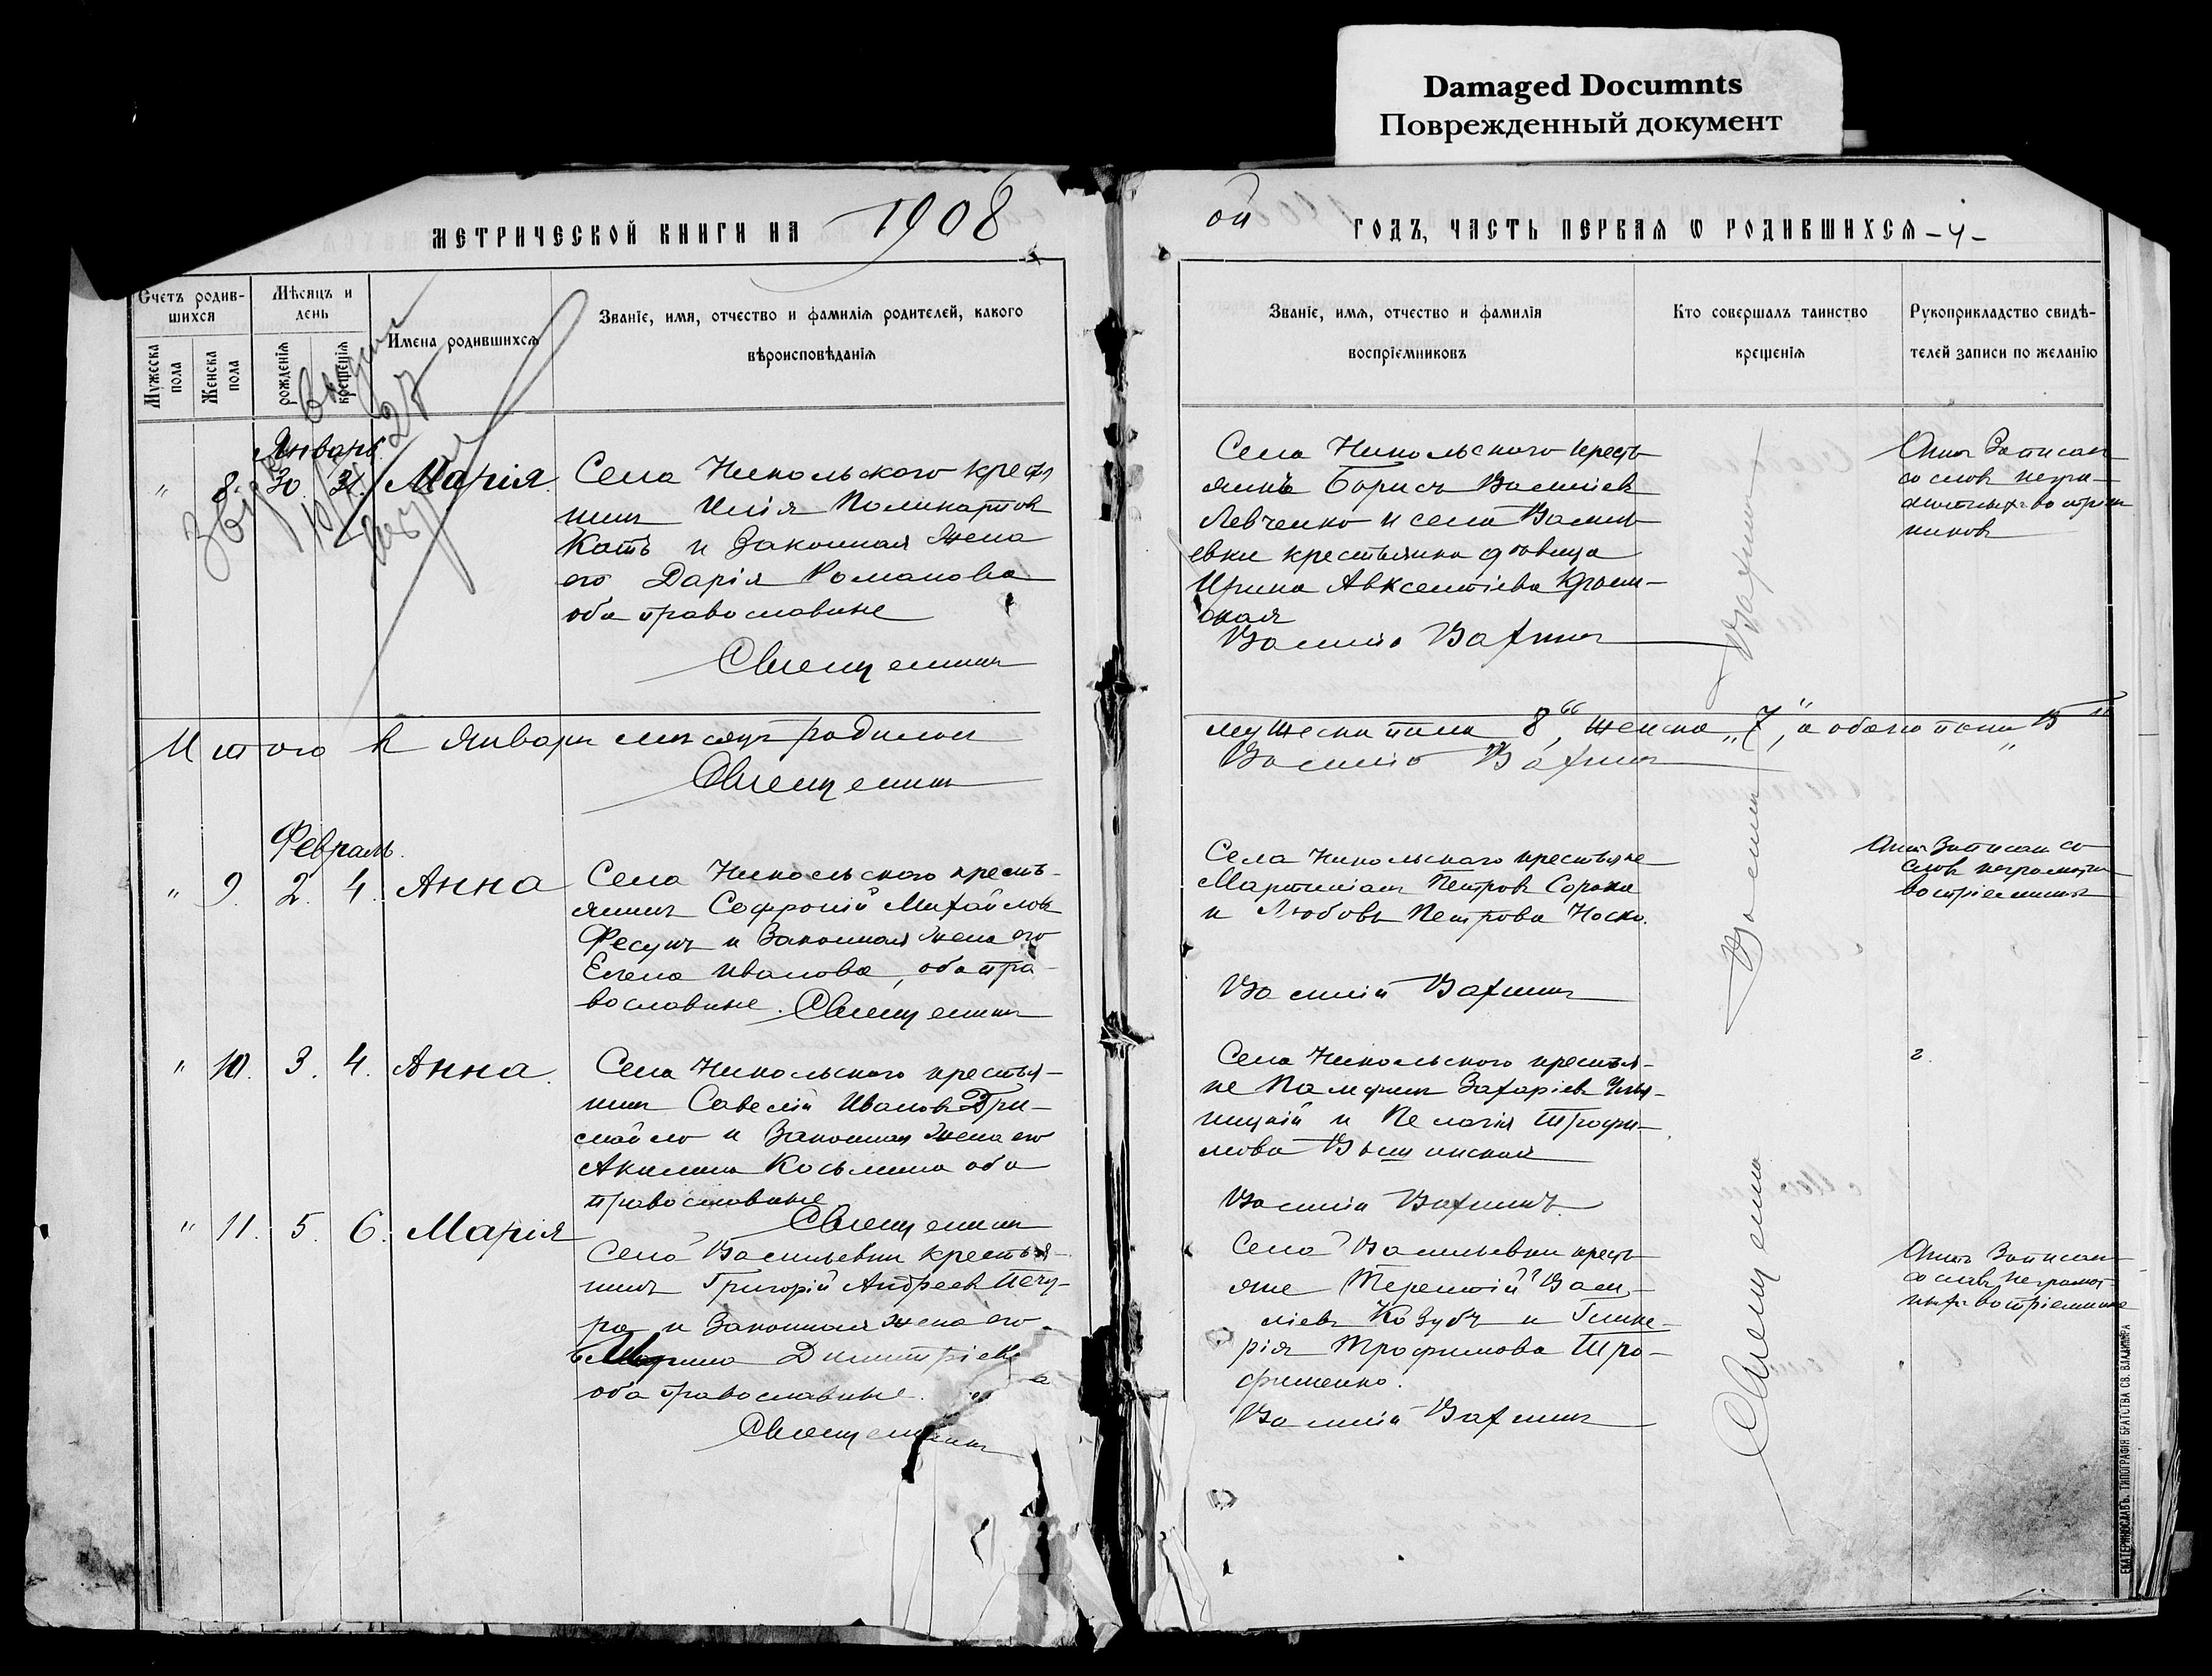 Damaged Documnts
Поврежденный документ
МЕТРИЧЕСКОЙ КНИГИ НА 1908
ой ГОДЪ, ЧАСТЬ ПЕРВАЯ Ѡ РОДИВШИХСЯ -4-
Счетъ родив-
шихся
Мужеска пола
Женска пола
Мѣсяцъ и
день
рожденія
крещенія
Имена родившихся
Званіе, имя, отчество и фамилія родителей, какого
вѣроисповѣданія
Званіе, имя, отчество и фамилія
воспріемниковъ
Кто совершалъ таинство
крещенія
Рукоприкладство свидѣ-
телей записи по желанію
Январь.
" 8. 30. 31. Марія.
Села Никольского кресть
нинъ Илія Поликарповъ
Коть и законная жена
его Дарія Романова
оба православные
Священникъ
Села Никольского кресть
янинъ Борисъ Василіев
Левченко и села Василь
евки крестьянка девица
Ирина Авксентіева
ская
Василій Вахнинъ
Актъ записан
со слов негра-
мотныхъ воспріем
никовъ
Итого в Январѣ мѣсяцѣ родилось
мужеска пола 8", женска "7", а обоего пола "15"
Священникъ
Василій Вахнинъ
Февраль.
" 9. 2. 4. Анна
Села Никольского кресть-
янинъ Софроній Михайловъ
Фесунъ и законная жена его
Елена Иванова, оба пра-
вославные. Священникъ
Села Никольского крестьяне
Мартиніанъ Петровъ Сорока
и Любовь Петрова Носко.
Василій Вахнинъ
Актъ записан со
словъ неграмотн
воспріемниковъ
" 10. 3. 4. Анна.
Села Никольского крестья-
нинъ Савелій Ивановъ Гри-
смайло и законная жена его
Акилина Косьмина оба
православные
Священникъ
Села Никольского крестья-
не Памфилъ Захаріевъ
и Пелагія Трофи-
мова Вышинская
Василій Вахнинъ.
" 11. 5. 6. Марія
Села Васильевки крестья-
нинъ Григорій Андреевъ Печу-
ра и законная жена его
Марина Димитріева
оба православные.
Священникъ
Села Васильевки кресть
яне Терентій Васи-
ліевъ Козубъ и Глике-
рія Трофимова Тро-
фименко.
Василій Вахнинъ
Актъ записан
со словъ неграмот
ныхъ воспріемников
Священникъ Василій Вахнинъ
ЕКАТЕРИНОСЛАВЪ. ТИПОГРАФІЯ БРАТСТВА СВ. ВЛАДИМІРА